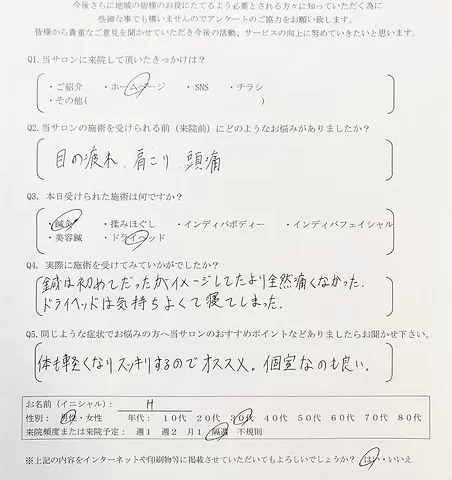 今後さらに地域の皆様のお役にたてるよう必要とされる方々に知っていただく為に
些細な事でも構いませんのでアンケートのご協力をお願い致します。
皆様から貴重なご意見を聞かせていただき今後の活動、サービスの向上に努めていきたいと思います。
Q1. 当サロンに来院して頂いたきっかけは？
・ご紹介 ・ホームページ ・SNS ・チラシ
・その他( )
Q2. 当サロンの施術を受けられる前（来院前）にどのようなお悩みがありましたか？
目の疲れ、肩こり、頭痛
Q3. 本日受けられた施術は何ですか？
・鍼灸 ・揉みほぐし ・インディバボディー ・インディバフェイシャル
・美容鍼 ・ドライヘッド
Q4. 実際に施術を受けてみていかがでしたか？
鍼は初めてだったがイメージしてたより全然痛くなかった.
ドライヘッドは気持ちよくて寝てしまった.
Q5. 同じような症状でお悩みの方へ当サロンのおすすめポイントなどありましたらお聞かせ下さい。
体も軽くなりスッキリするのでオススメ。個室なのも良い.
お名前（イニシャル）： H
性別： 男性・女性 年代： 10代 20代 30代 40代 50代 60代 70代 80代
来院頻度または来院予定： 週1 週2 月1 隔週 不規則
※上記の内容をインターネットや印刷物等に掲載させていただいてもよろしいでしょうか？ はい・いいえ